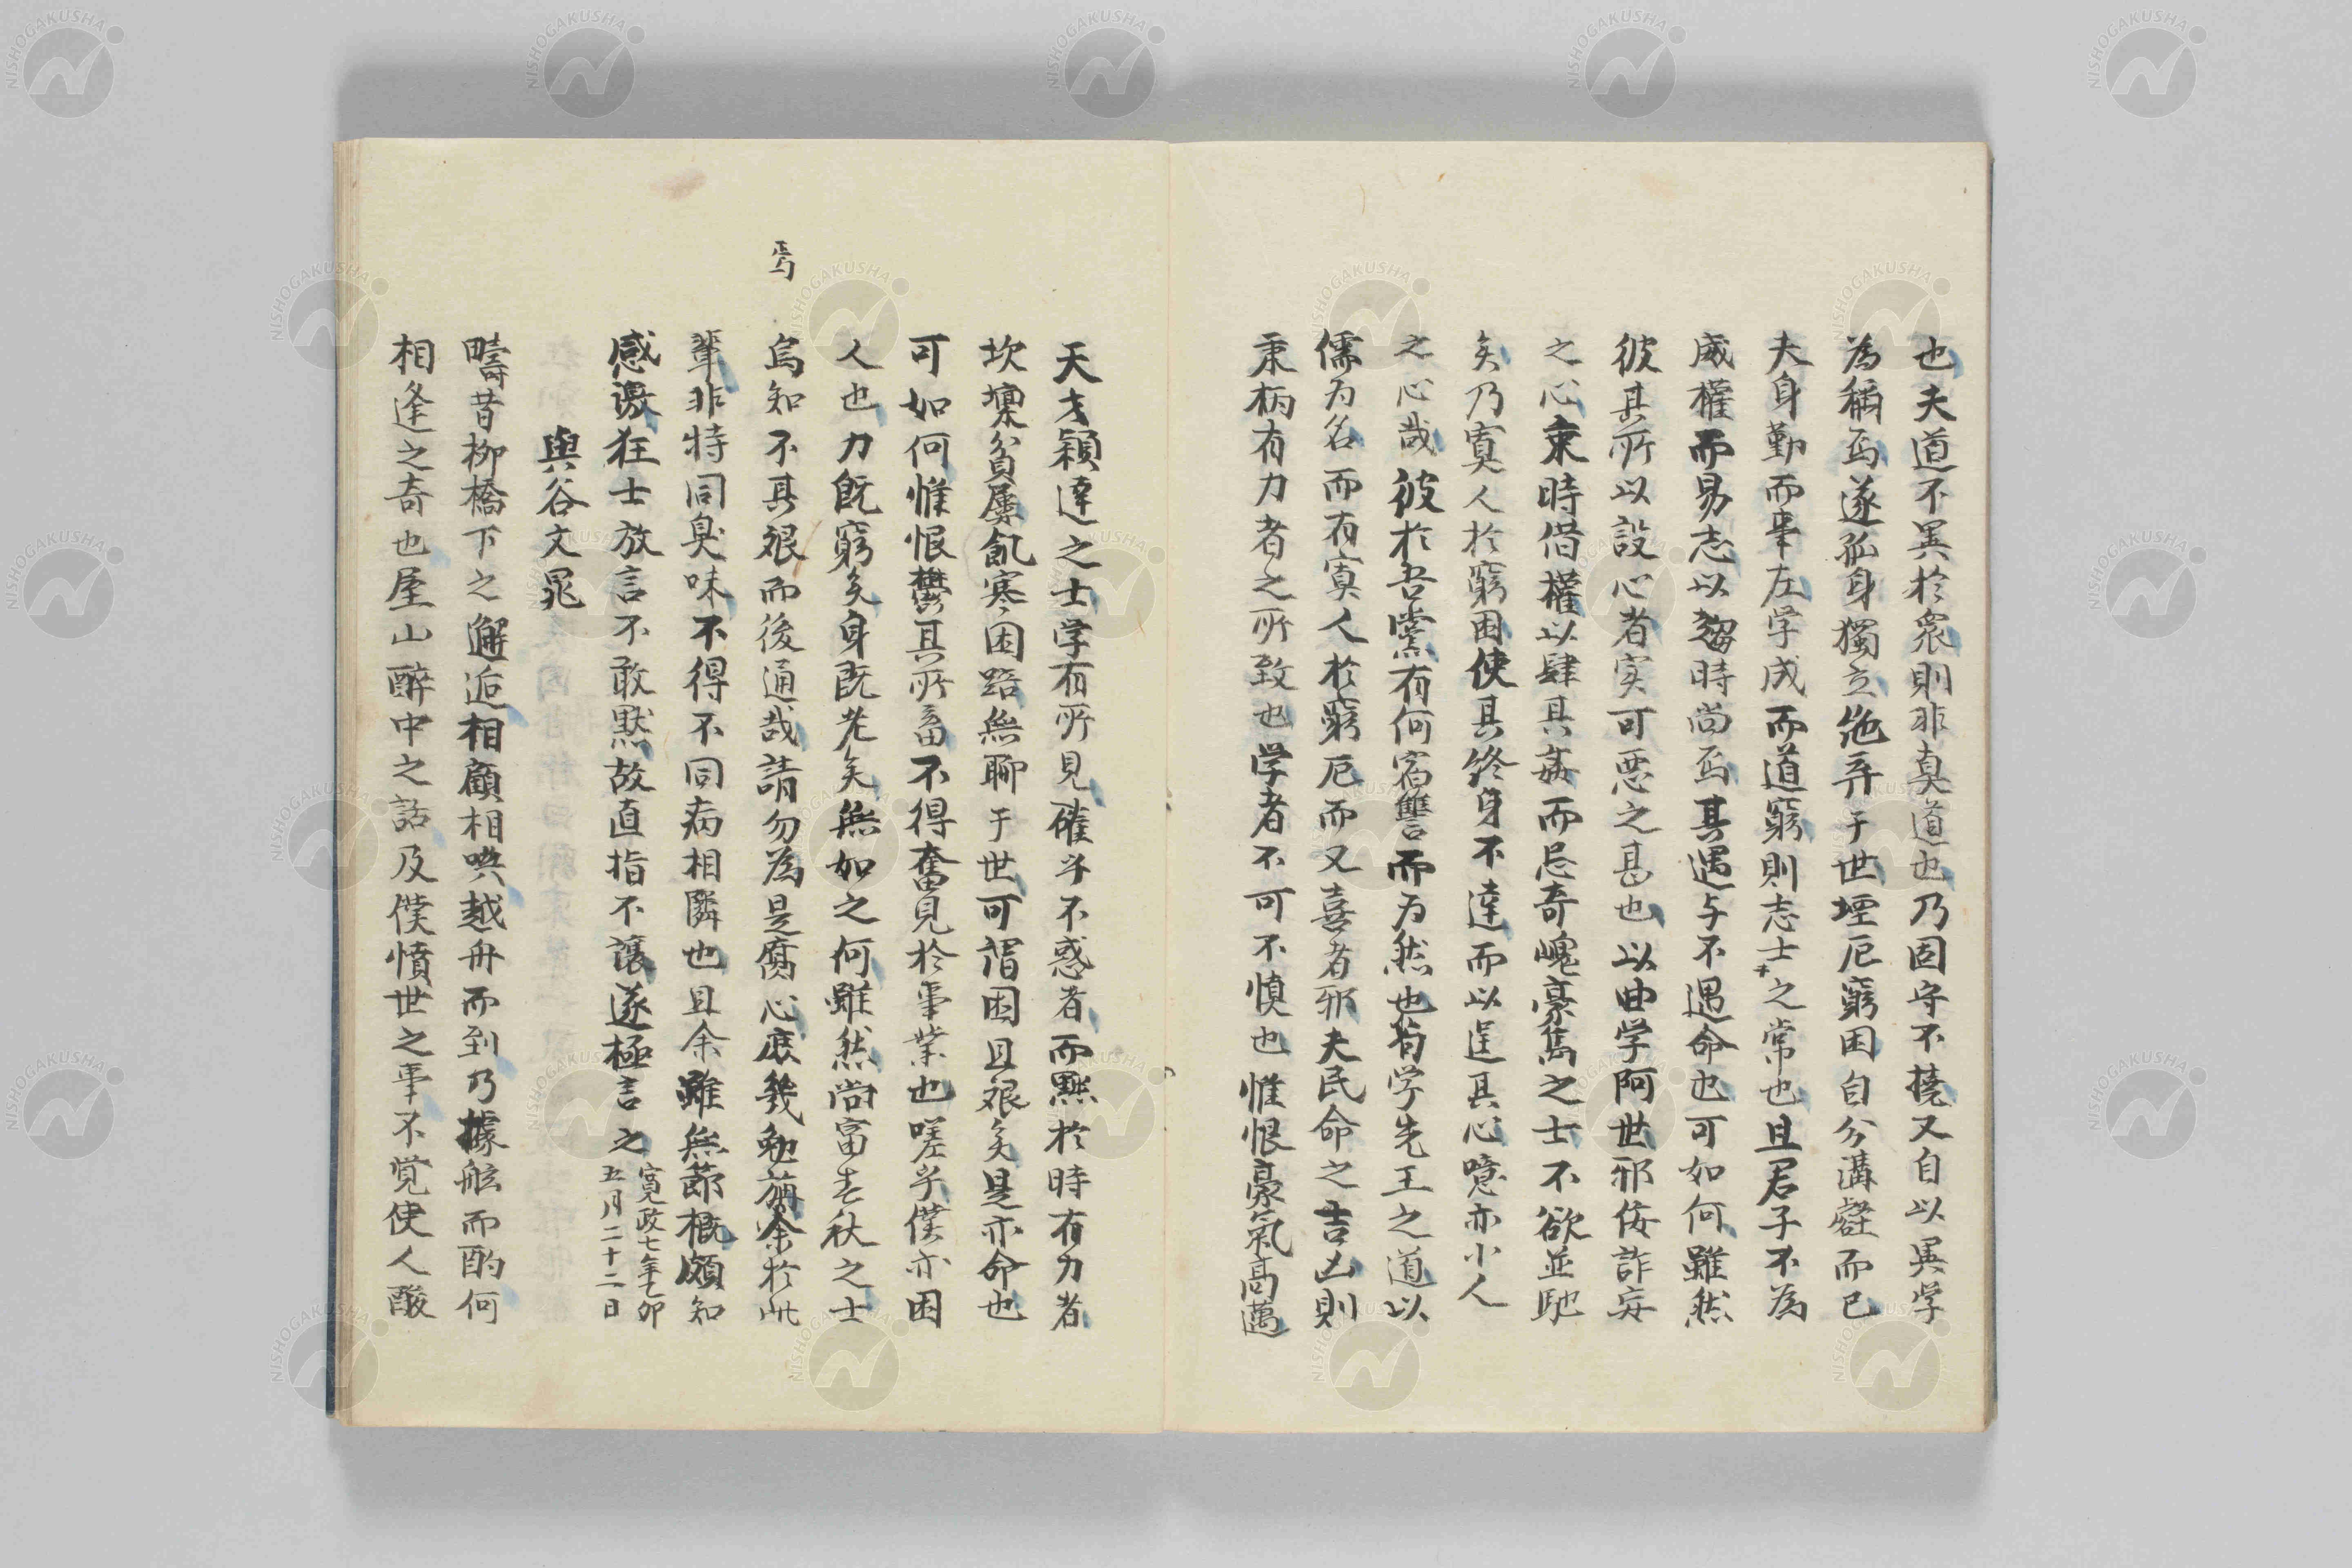 也夫道不異於衆則非真道也乃固守不撓又自以異学
為稱焉遂孤身獨立危弃于世堙厄窮困自分溝壑而已
夫身勤而事左学成而道窮則志士之常也且君子不為
威權而易志以趨時尚焉其遇与不遇命也可如何雖然
彼其所以設心者実可悪之甚也以曲学阿世邪佞詐妄
之心東時借權以肆其姦而忌奇巍豪雋之士不欲並馳
矣乃寘人於窮困使其終身不達而以逞其心噫亦小人
之心哉彼於吾黨有何宿讐而为然也苟学先王之道以
儒为名而有寘人於窮厄而又喜者邪夫民命之吉凶則
秉柄有力者之所致也学者不可不慎也惟恨豪氣髙邁
天才穎達之士学有所見確乎不惑者而黜於時有力者
坎壈貧屢飢寒困踣無聊于世可謂困且艱矣是亦命也
可如何惟恨欝其所畜不得奮見於事業也嗟乎僕亦困
人也力既窮矣身既老矣無如之何雖然尚富春秋之士
焉
烏知不其艱而後通哉請勿為是腐心庶幾勉旃余於此
輩非特同臭味不得不同病相隣也且余雖無節概頗知
感激狂士放言不敢黙故直指不讓遂極言之
寛政七年乙卯
五月二十二日
與谷文晁
疇昔柳橋下之邂逅相顧相哄越舟而到乃據舷而酌何
相逢之奇也屋山醉中之話及僕憤世之事不覚使人酸
NISHOGAKUSHA